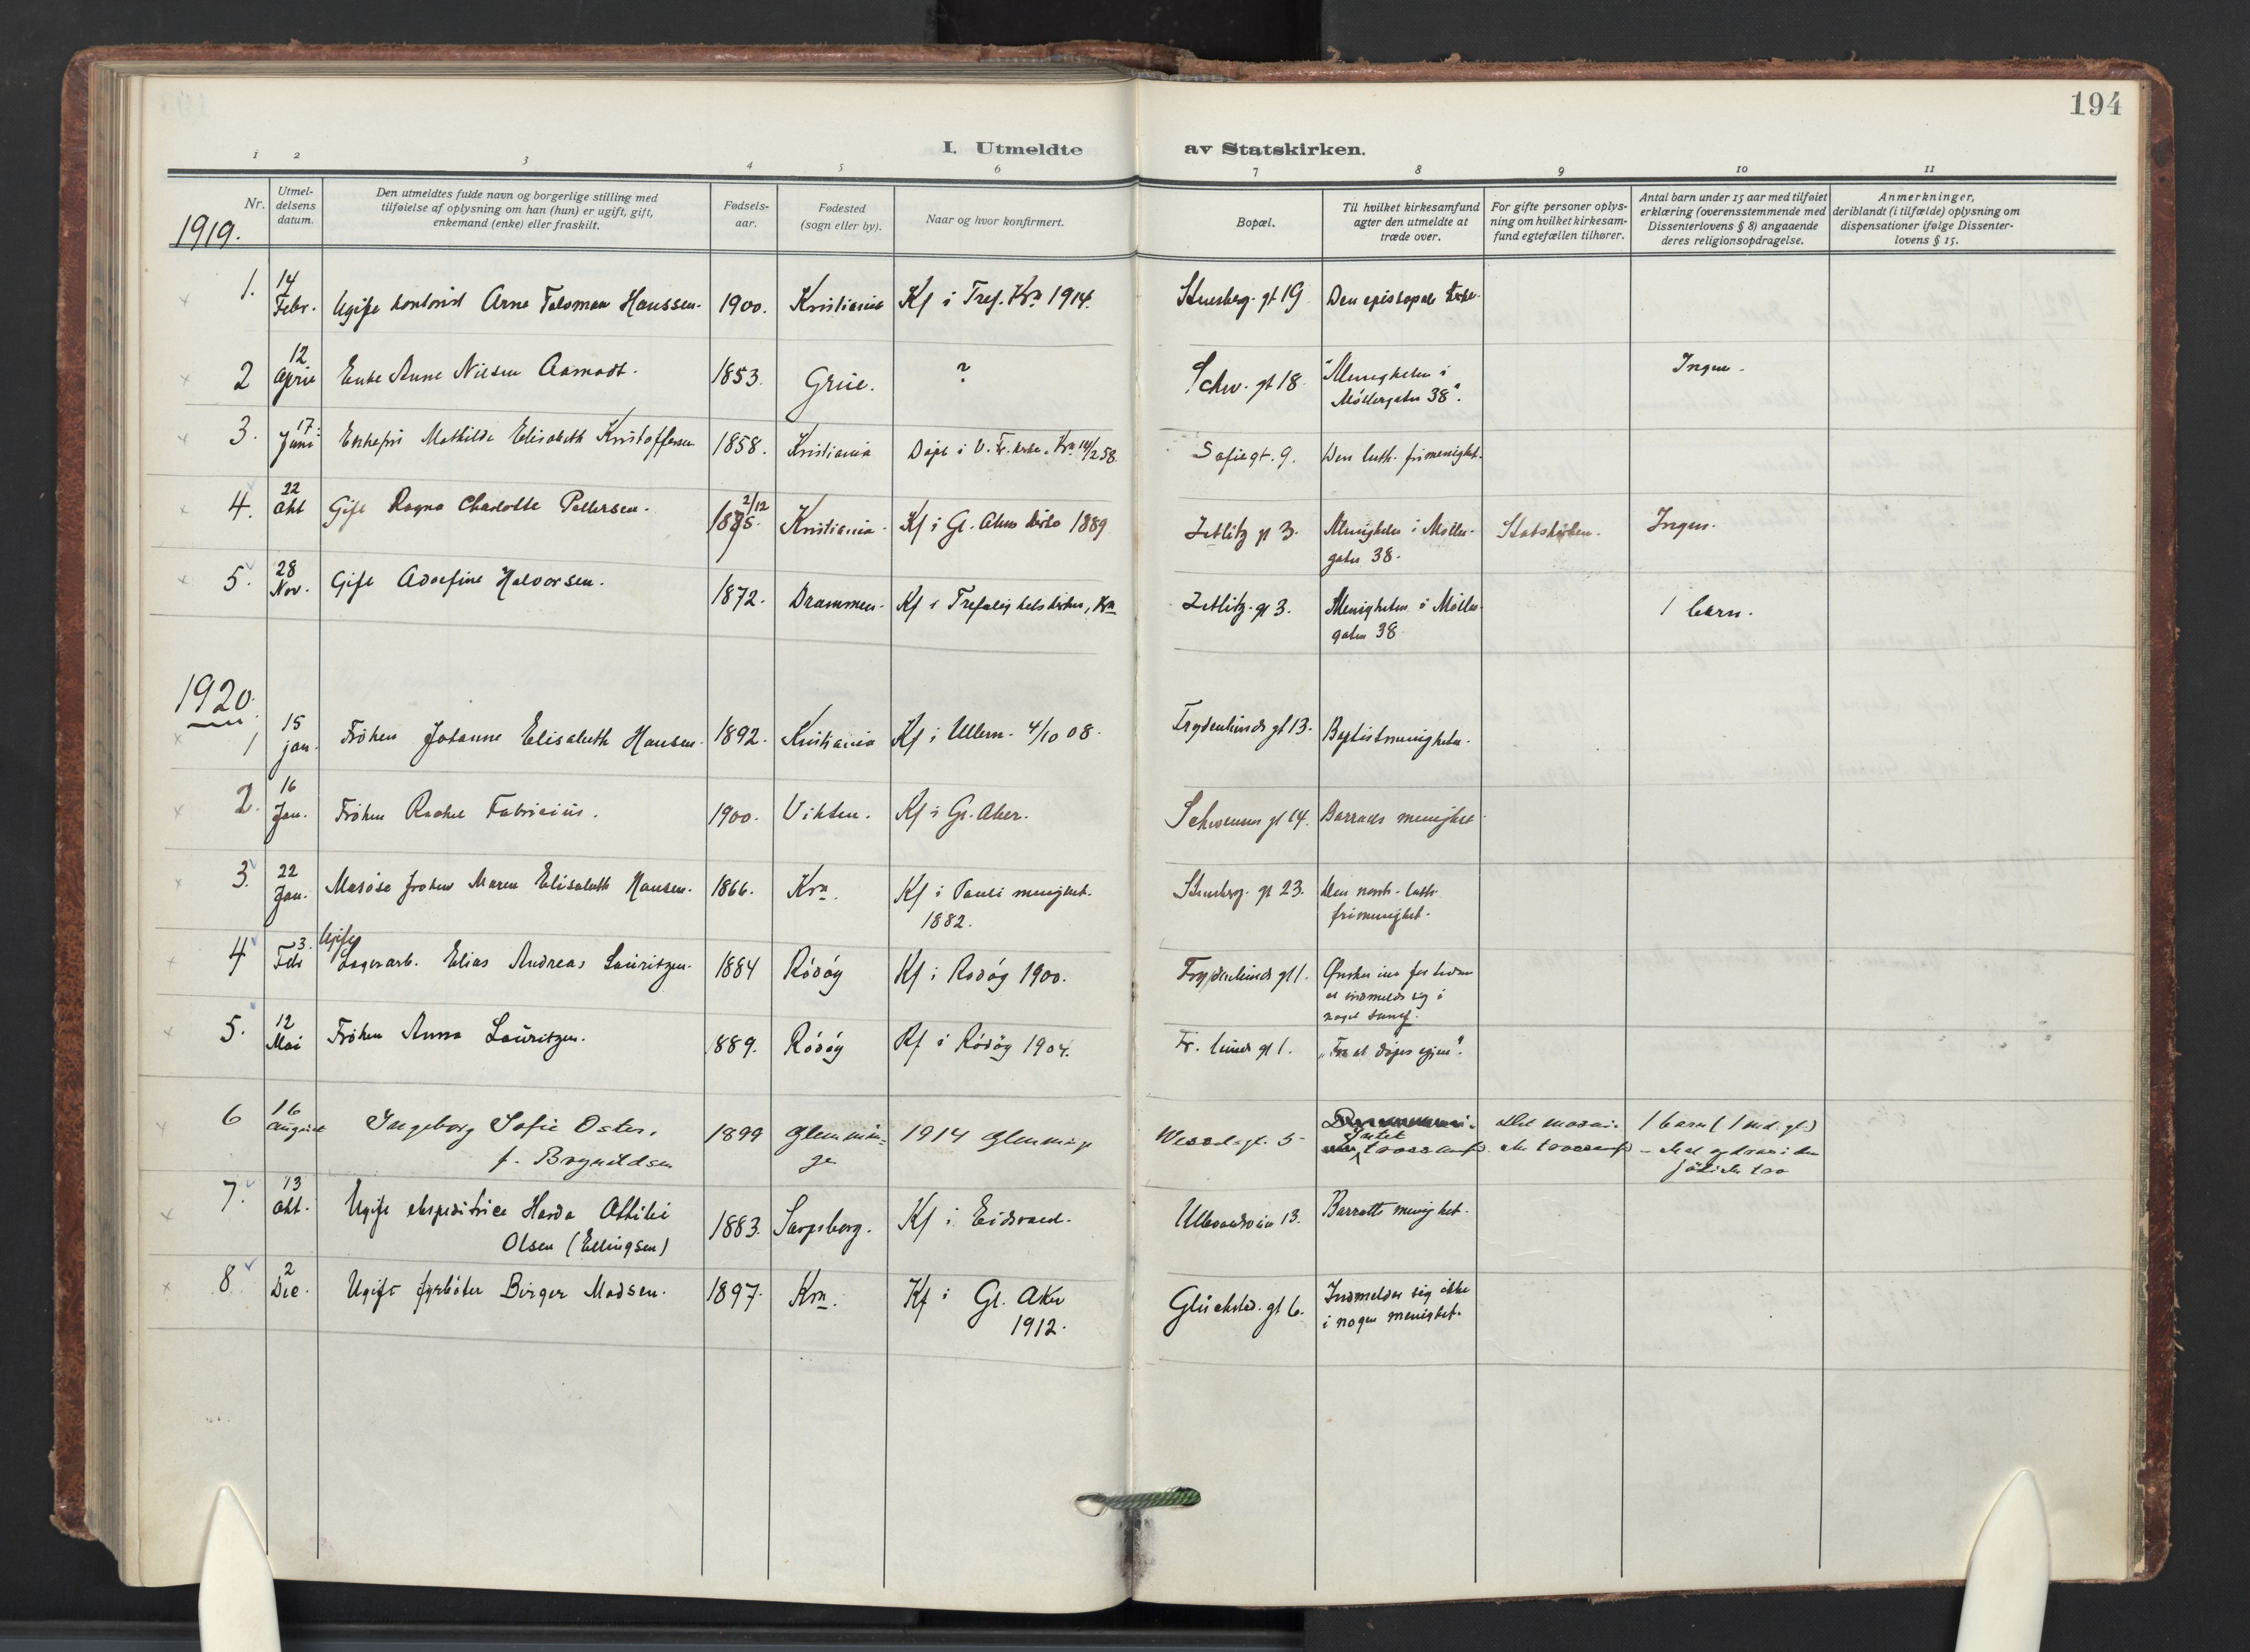 194
I. Utmeldte av Statskirken.
1 2 3 4 5 6 7 8 9 10 11
Nr.
Utmel-
delsens
datum.
Den utmeldtes fulde navn og borgerlige stilling med
tilføielse af oplysning om han (hun) er ugift, gift,
enkemand (enke) eller fraskilt.
Fødsels-
aar.
Fødested
(sogn eller by).
Naar og hvor konfirmert.
Bopæl.
Til hvilket kirkesamfund
agter den utmeldte at
træde over.
For gifte personer oplys-
ning om hvilket kirkesam-
fund egtefællen tilhører.
Antal barn under 15 aar med tilføiet
erklæring (overensstemmende med
Dissenterlovens § 8) angaaende
deres religionsopdragelse.
Anmerkninger,
deriblandt (i tilfælde) oplysning om
dispensationer ifølge Dissenter-
lovens § 15.
1919.
1. 14 Febr. Ugift kontorist Arne Hanssen. 1900. Kristiania Kf i Tref. Krª 1914. gt 19 Den episkopale kirke.
2 12 April Enke Anne Nilsen Aamodt. 1853. Grue. ? Schw. gt 18. "Menigheten i
Møllergaten 38". Ingen.
3. 17 Juni Mathilde Elisabeth Kristoffersen 1858. Kristiania Døpt i V. Fr. kirke, Krª 14/2 58. Sofie gt. 9. Den luth. frimenighet.
4. 22 Okt Gift Ragna Charlotte Pettersen. 2/12 Kristiania. Kf i Gl. Akers kirke 1889 Zetlitz gt 3. Menigheten i Møller-
gaten 38. Statskirken. Ingen.
5. 28 Nov. Gift Adolfine Halvorsen. 1872. Drammen. Kf i Trefoldighetskirken, Krª Zetlitz. gt 3. Menigheten i Møller-
gaten 38 1 barn.
1920.
1 15 jan. Frøken Johanne Elisabeth Hansen. 1892. Kristiania Kf i Ullern. 4/10 08. Frydenlunds gt 13. Baptistmenigheten.
2. 16 Jan. Frøken Rachel Fabricius. 1900. Vikten. Kf i Gl. Aker. Schwenns gt 14. Barratts menighet.
3. 22 Jan. Frøken Maren Elisabeth Hansen. 1866. Krª. Kf i Pauli menighet.
1882. gt 23. Den norsk-luth.
frimenighet.
4 3. Febr Ugift
Lagerarb. Elias Andreas Lauritzen. 1884 Rödöy Kf i Rödöy 1900. Frydenlunds gt 1. Ønsker ikke for tiden
at indmelde sig i
noget samf.
5. 12 Mai Frøken Anna Lauritzen. 1889. Rödöy Kf i Rödöy 1904. Fr. lunds gt 1. "For at døpes igjen".
6 16 August Ingeborg Sofie Oster,
f. Brynildsen 1899 Glemmin-
ge 1914 Glemminge Wessels gt. 5 trossamf. Det mosai-
ske trossamf 1 barn (1 md. gl.)
– skal opdras i den
jødiske tro
7. 13 Okt. Ugift ekspeditrice Harda Othilie
Olsen (Ellingsen) 1883. Sarpsborg. Kf i Eidsvold. Ullevoldsvei 13. Barratts menighet.
8 2 Dec. Ugift fyrbøter Birger Madsen. 1897. Krª. Kf i Gl. Aker
1912. Glückstd. gt 6. Indmelder sig ikke
i nogen menighet.